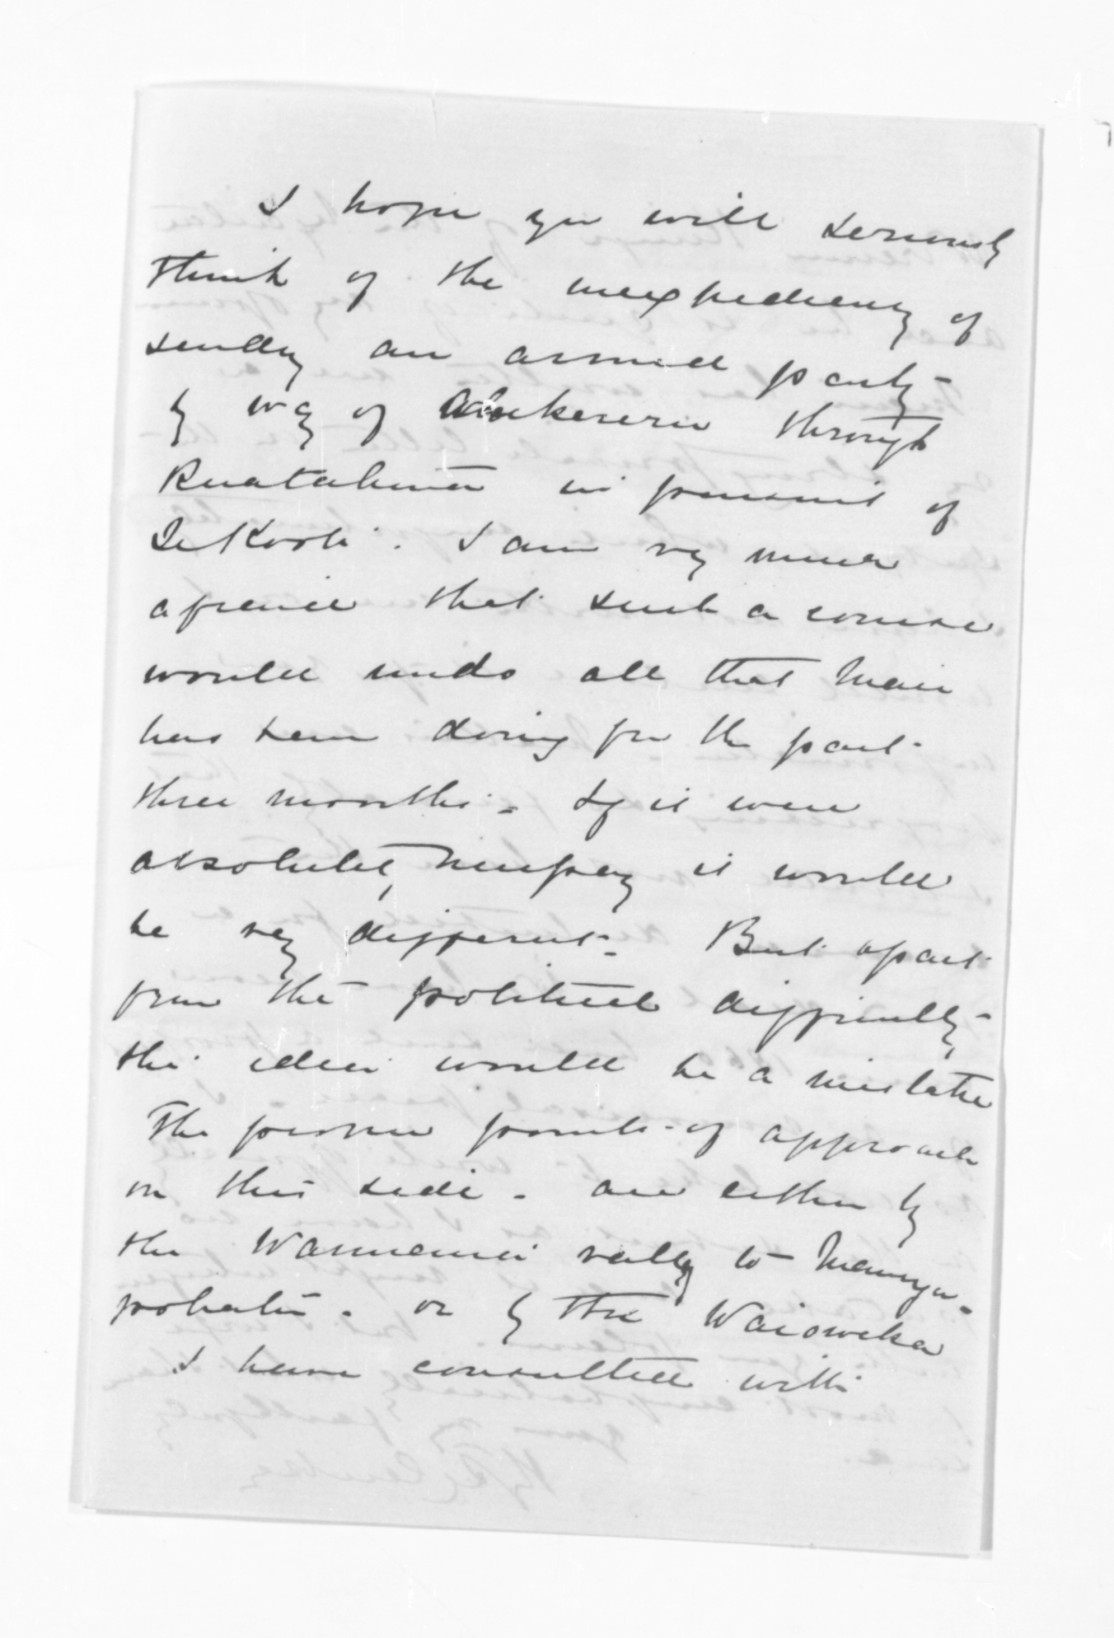 I hope you will seriously
think of the inexpediency of
sending an armed party
by way of Ahikereru through
Ruatahuna in pursuit of
Te Kooti. I am very much
afraid that such a course
would undo all that Mair
has been doing for the past
three months - If it were
absolutely necessary it would
be very different - But apart
from the political difficulty,
the idea would be a mistake
The proper points of approach
on this side - are either by
the Waimana valley to Maunga-
pohatu - or by the Waioweka
I have consulted with